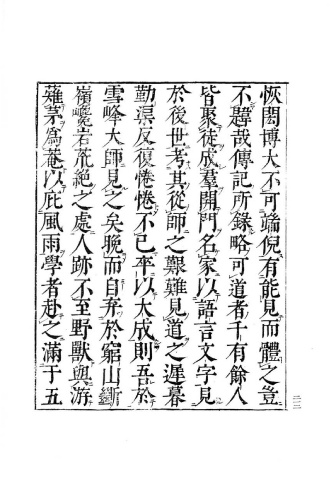 恢閎博大不可端倪有能見而體之豈
不韙哉傳記所錄略可道者千有餘人
皆聚徒成羣開門名家以語言文字見
於後世考其從師之艱難見道之遲暮
勤渠反復惓惓不已卒以大成則吾於
雪峰大師見之矣晚而自弃於窮山斷
嶺巉岩荒絕之處人跡不至野獸與游
薙茅爲菴以庇風雨學者赴之滿于五
二三